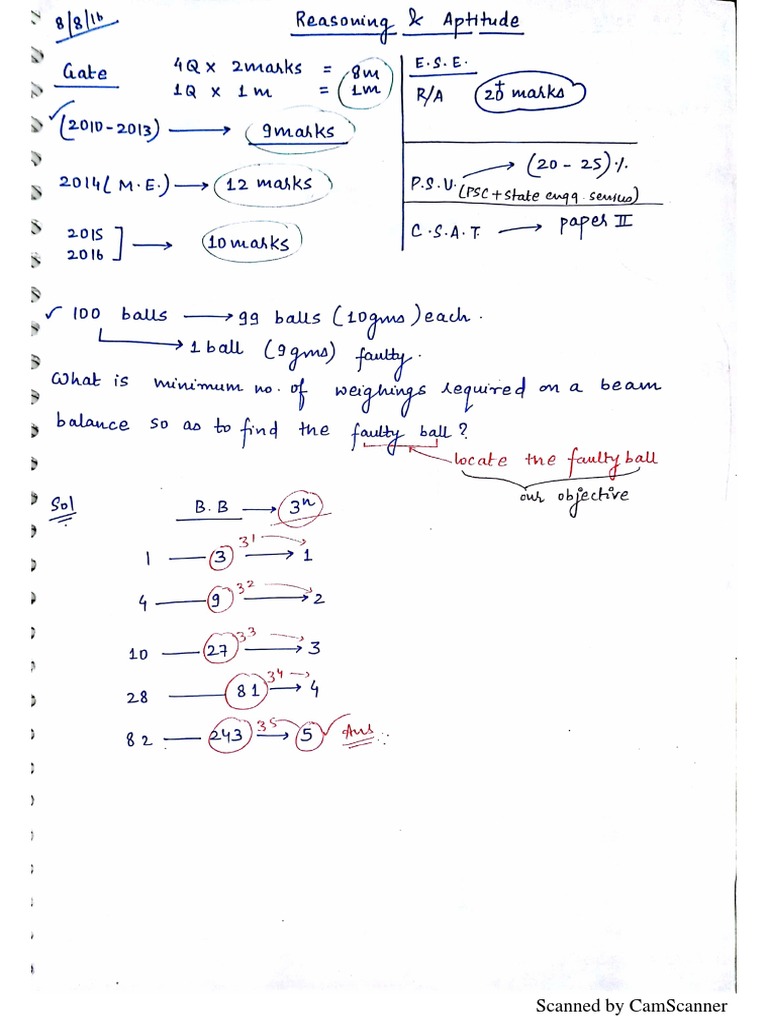 8/8/16
Reasoning & Aptitude
Gate
4Q x 2marks = 8m
1Q x 1m = 1m
(2010-2013) → 9marks
2014 (M.E.) → 12 marks
2015
2016 ] → 10marks
E.S.E.
R/A 20+ marks
P.S.U. → (20-25)%
(PSC + State engg. services)
C.S.A.T. → paper II
✓ 100 balls → 99 balls (10gms) each.
→ 1 ball (9gms) faulty.
What is minimum no. of weighings required on a beam
balance so as to find the faulty ball?
locate the faulty ball
our objective
Sol
B.B → 3ⁿ
1 — 3 → 1 3¹
4 — 9 → 2 3²
10 — 27 → 3 3³
28 — 81 → 4 3⁴
82 — 243 → 5 3⁵ ✓ Ans
Scanned by CamScanner